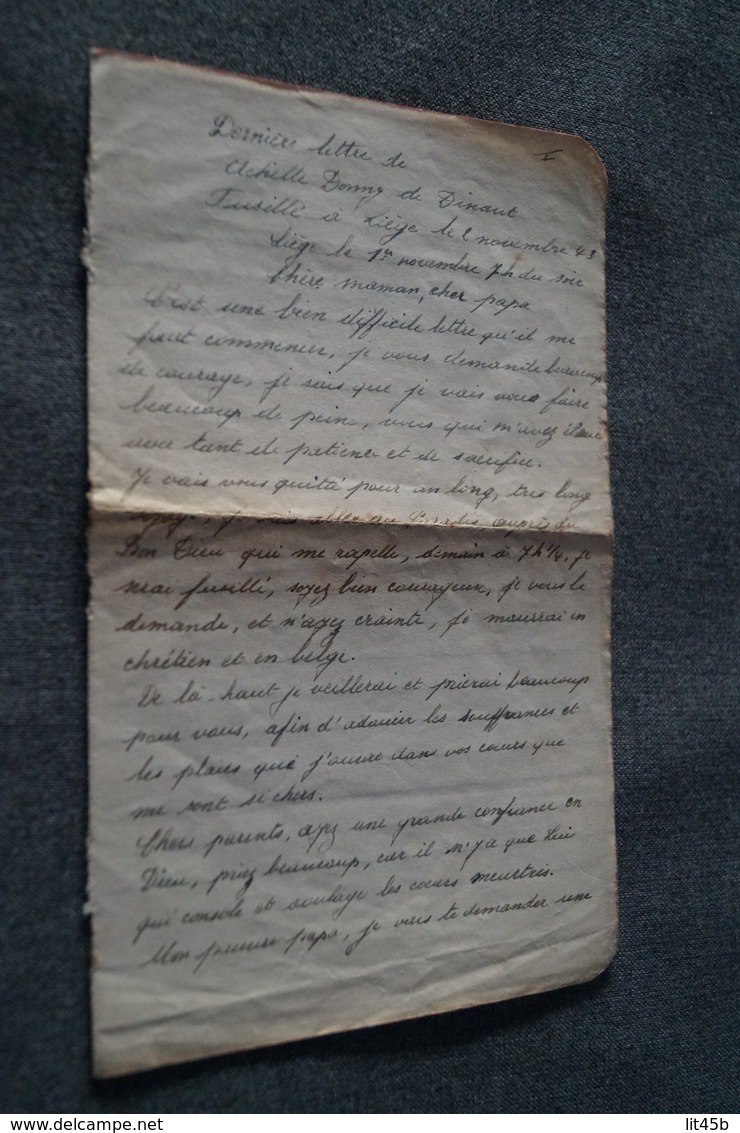 I
Dernière lettre de
Achille Donny de Dinant
Fusillé à Liège le 2 novembre 43
Liège le 1er novembre 7h du soir
Chère maman, cher papa
C'est une bien difficile lettre qu'il me
faut commencer, je vous demande beaucoup
de courage, je sais que je vais vous faire
beaucoup de peine, vous qui m'avez élevé
avec tant de patience et de sacrifice.
Je vais vous quitté pour un long, très long
voyage, je vais aller au Paradis auprès du
Bon Dieu qui me rapelle, demain à 7h¼, je
serai fusillé, soyez bien courageux, je vous le
demande, et n'ayez crainte, je mourrai en
chrétien et en belge.
De là-haut je veillerai et prierai beaucoup
pour vous, afin d'adoucir les souffrances et
les plaies que j'ouvre dans vos cœurs que
me sont si chers.
Chers parents, ayez une grande confiance en
Dieu, priez beaucoup, car il n'y a que Lui
qui console et soulage les cœurs meurtris.
Mon pauvre papa, je vais te demander une
delcampe.net
lit45b